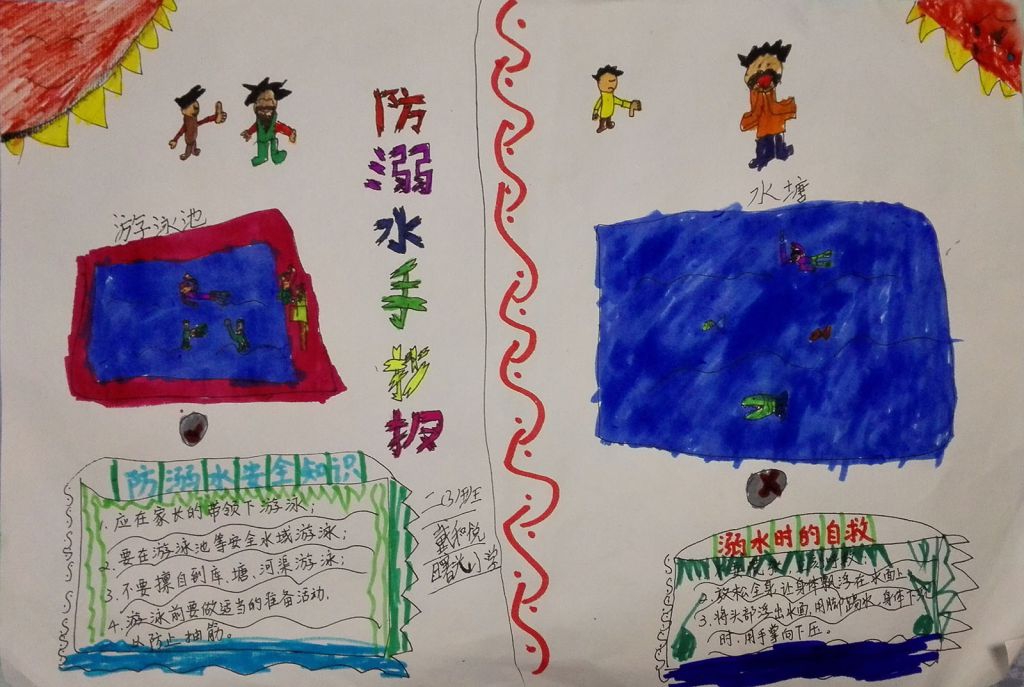 防溺水手抄报
游泳池
防溺水安全知识
1. 应在家长的带领下游泳；
2. 要在游泳池等安全水域游泳；
3. 不要擅自到库、塘、河渠游泳；
4. 游泳前要做适当的准备活动，
以防止抽筋。
二（3）班
戴和悦
小学
水塘
溺水时的自救
2. 放松全身，让身体飘浮在水面上
3. 将头部浮出水面，用脚踢水，身体下
时，用手掌向下压。